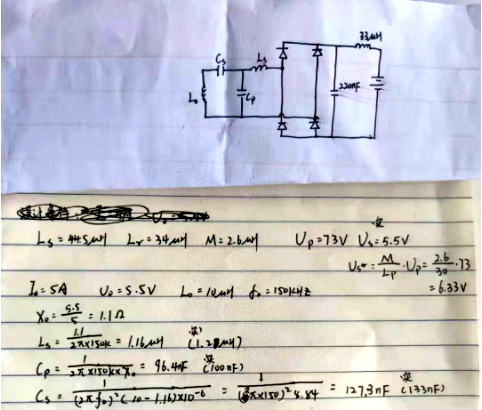 33μH
Cs
Ls
Lo
Cp
220nF
Ls = 44.5μH Lr = 34μH M = 2.6μH Up = 73V Us = 5.5V
Us = M/Lp · Up = 2.6/30 · 73
= 6.33V
Io = 5A Uo = 5.5V Lo = 10μH fo = 150kHz
Xo = 5.5/5 = 1.1Ω
Ls = 1.1/2π×150k = 1.16μH (1.2μH)
Cp = 1/2π×150k×Xo = 96.4nF (100nF)
Cs = 1/(2πfo)²(10-1.16)×10⁻⁶ = 1/(2π×150)² 8.84 = 127.3nF (133nF)